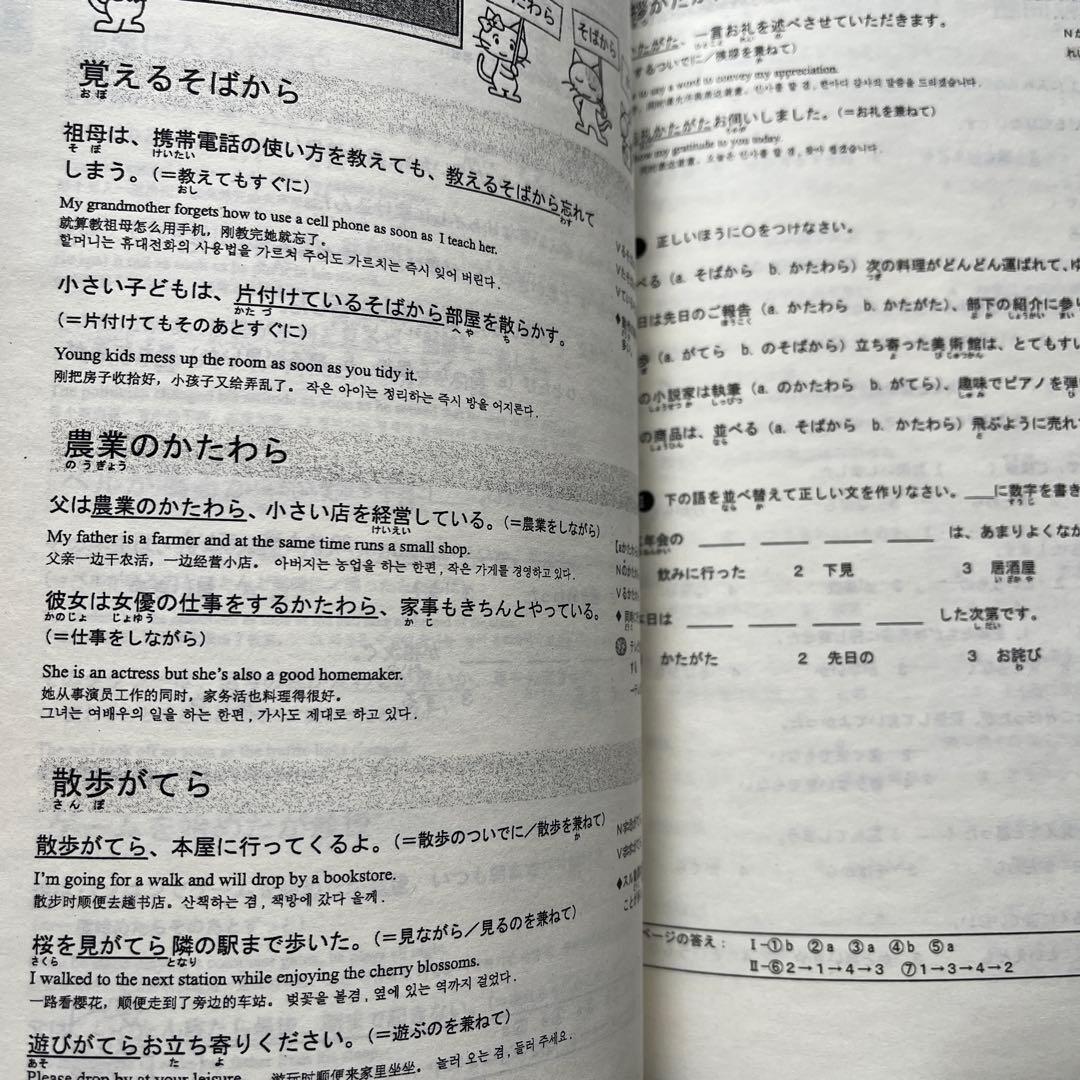 たわら
そばから
覚えるそばから
おぼ
祖母は、携帯電話の使い方を教えても、教えるそばから忘れて
そ ぼ けいたい わす
しまう。(=教えてもすぐに)
おし
My grandmother forgets how to use a cell phone as soon as I teach her.
就算教祖母怎么用手机，刚教完她就忘了。
할머니는 휴대전화의 사용법을 가르쳐 주어도 가르치는 즉시 잊어 버린다.
小さい子どもは、片付けているそばから部屋を散らかす。
かた づ へ や ち
(=片付けてもそのあとすぐに)
Young kids mess up the room as soon as you tidy it.
刚把房子收拾好，小孩子又给弄乱了。 작은 아이는 정리하는 즉시 방을 어지른다.
農業のかたわら
のうぎょう
父は農業のかたわら、小さい店を経営している。(=農業をしながら)
けいえい
My father is a farmer and at the same time runs a small shop.
父亲一边干农活，一边经营小店。 아버지는 농업을 하는 한편, 작은 가게를 경영하고 있다.
彼女は女優の仕事をするかたわら、家事もきちんとやっている。
かのじょ じょゆう か じ
(=仕事をしながら)
She is an actress but she's also a good homemaker.
她从事演员工作的同时，家务活也料理得很好。
그녀는 여배우의 일을 하는 한편, 가사도 제대로 하고 있다.
散歩がてら
さん ぽ
散歩がてら、本屋に行ってくるよ。(=散歩のついでに/散歩を兼ねて)
か
I'm going for a walk and will drop by a bookstore.
散步时顺便去趟书店。 산책하는 겸, 책방에 갔다 올께.
桜を見がてら隣の駅まで歩いた。(=見ながら/見るのを兼ねて)
さくら となり
I walked to the next station while enjoying the cherry blossoms.
一路看樱花，顺便走到了旁边的车站。 벚꽃을 볼겸, 옆에 있는 역까지 걸었다.
遊びがてらお立ち寄りください。(=遊ぶのを兼ねて)
あそ た よ
Please drop by at your leisure. 游玩时顺便来家里坐坐。 놀러 오는 겸, 들러 주세요.
かたがた、一言お礼を述べさせていただきます。
するついでに/挨拶を兼ねて)
to say a word to convey my appreciation.
礼かたがたお伺いしました。(=お礼を兼ねて)
my gratitude to you today.
正しいほうに○をつけなさい。
べる (a. そばから b. かたわら) 次の料理がどんどん運ばれて、ゆ
つぎ
日は先日のご報告 (a. かたわら b. かたがた)、部下の紹介に参り
ほうこく ぶ か しょうかい まい
歩 (a. がてら b. のそばから) 立ち寄った美術館は、とてもすい
よ びじゅつかん
の小説家は執筆 (a. のかたわら b. がてら)、趣味でピアノを弾
しょうせつ か しっぴつ しゅ み ひ
の商品は、並べる (a. そばから b. かたわら) 飛ぶように売れて
しょうひん なら と
下の語を並べ替えて正しい文を作りなさい。___に数字を書き
なら か すうじ
年会の ___ ___ ___ ___ は、あまりよくなか
飲みに行った 2 下見 3 居酒屋
い ざか や
日は ___ ___ ___ ___ した次第です。
しだい
かたがた 2 先日の 3 お詫び
わ
ページの答え： Ⅰ-①b ②a ③a ④b ⑤a
Ⅱ-⑥2→1→4→3 ⑦1→3→4→2